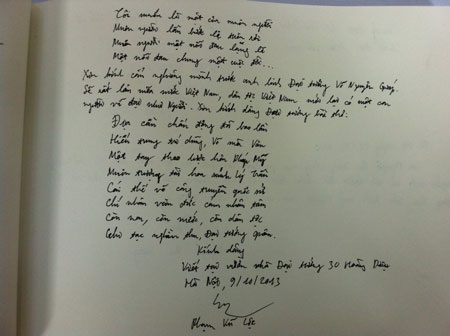 Tôi muốn là một của muôn người
Muôn người lần bước lệ tuôn rơi
Muôn người một nỗi đau lặng lẽ
Một nỗi đau chung một cuộc đời...
Xin kính cẩn nghiêng mình trước anh linh Đại tướng Võ Nguyên Giáp.
Sẽ rất lâu nữa nước Việt Nam, dân tộc Việt Nam mới lại có một con
người vĩ đại như Người. Xin kính dâng Đại tướng bài thơ:
Địa cầu chấn động đã bao lần
Hiến trung trí dũng, Võ mà Văn
Một tay thao lược hơn Pháp Mỹ
Muôn trượng tài hoa sánh Lý Trần
Cái thế võ công truyền quốc sử
Chí nhân văn đức cảm nhân tâm
Còn non, còn nước, còn dân tộc
Ghi tạc nghìn thu, Đại tướng quân.
Kính dâng
Viết tại viếng nhà Đại tướng 30 Hoàng Diệu
Hà Nội, 9/10/2013
Phạm Vũ